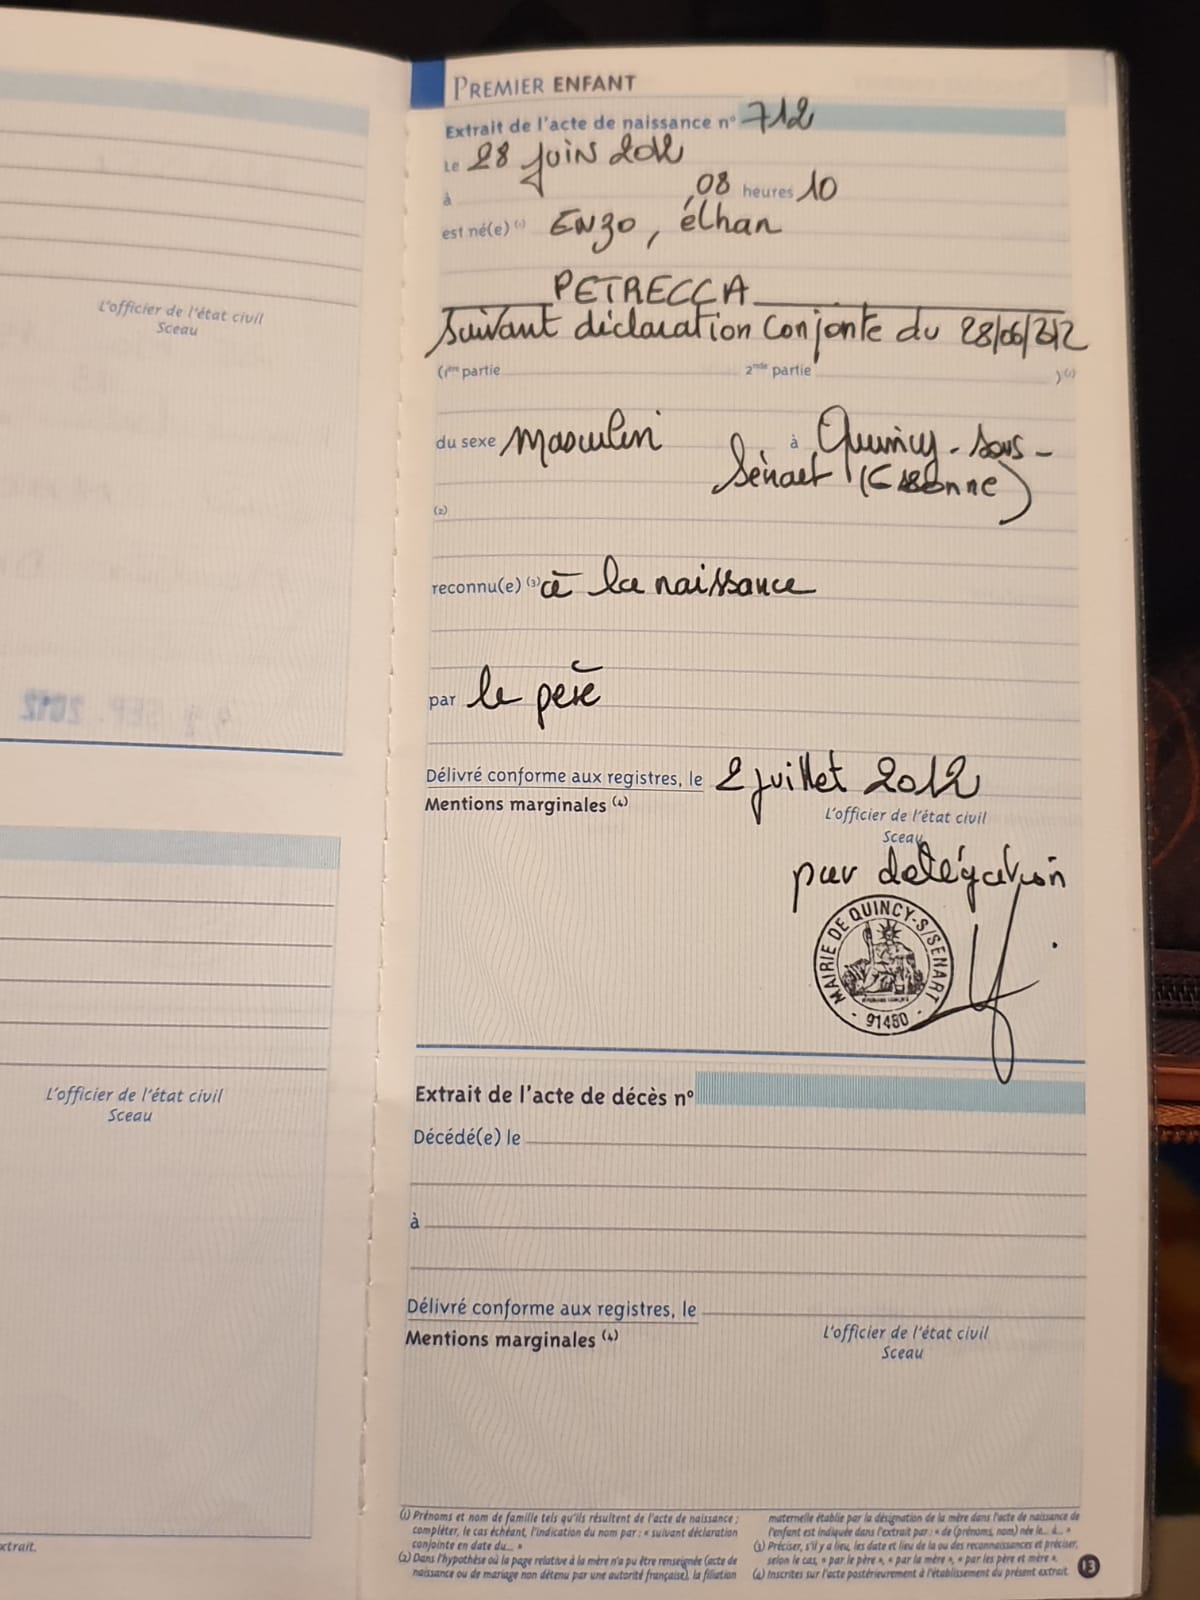 L'officier de l'état civil
Sceau
L'officier de l'état civil
Sceau
xtrait.
PREMIER ENFANT
Extrait de l'acte de naissance n° 712
Le 28 juin 2012
à 08 heures 10
est né(e) (1) Enzo, élhan
PETRECCA
suivant déclaration conjonte du 28/06/2012
(1ère partie 2nde partie )(1)
du sexe masculin à Quincy-sous-
Sénart (Essonne)
(2)
reconnu(e) (3) à la naissance
par le père
Délivré conforme aux registres, le 2 juillet 2012
Mentions marginales (4)
L'officier de l'état civil
Sceau
par délégation
MAIRIE DE QUINCY-S/SENART
- 91480 -
Extrait de l'acte de décès n°
Décédé(e) le
à
Délivré conforme aux registres, le
Mentions marginales (4)
L'officier de l'état civil
Sceau
(1) Prénoms et nom de famille tels qu'ils résultent de l'acte de naissance ;
compléter, le cas échéant, l'indication du nom par : « suivant déclaration
conjointe en date du... »
(2) Dans l'hypothèse où la page relative à la mère n'a pu être renseignée (acte de
naissance ou de mariage non détenu par une autorité française), la filiation
maternelle établie par la désignation de la mère dans l'acte de naissance de
l'enfant est indiquée dans l'extrait par : « de (prénoms, nom) née le... à... »
(3) Préciser, s'il y a lieu, les date et lieu de la ou des reconnaissances et préciser,
selon le cas, « par le père », « par la mère », « par les père et mère ».
(4) Inscrites sur l'acte postérieurement à l'établissement du présent extrait.
13